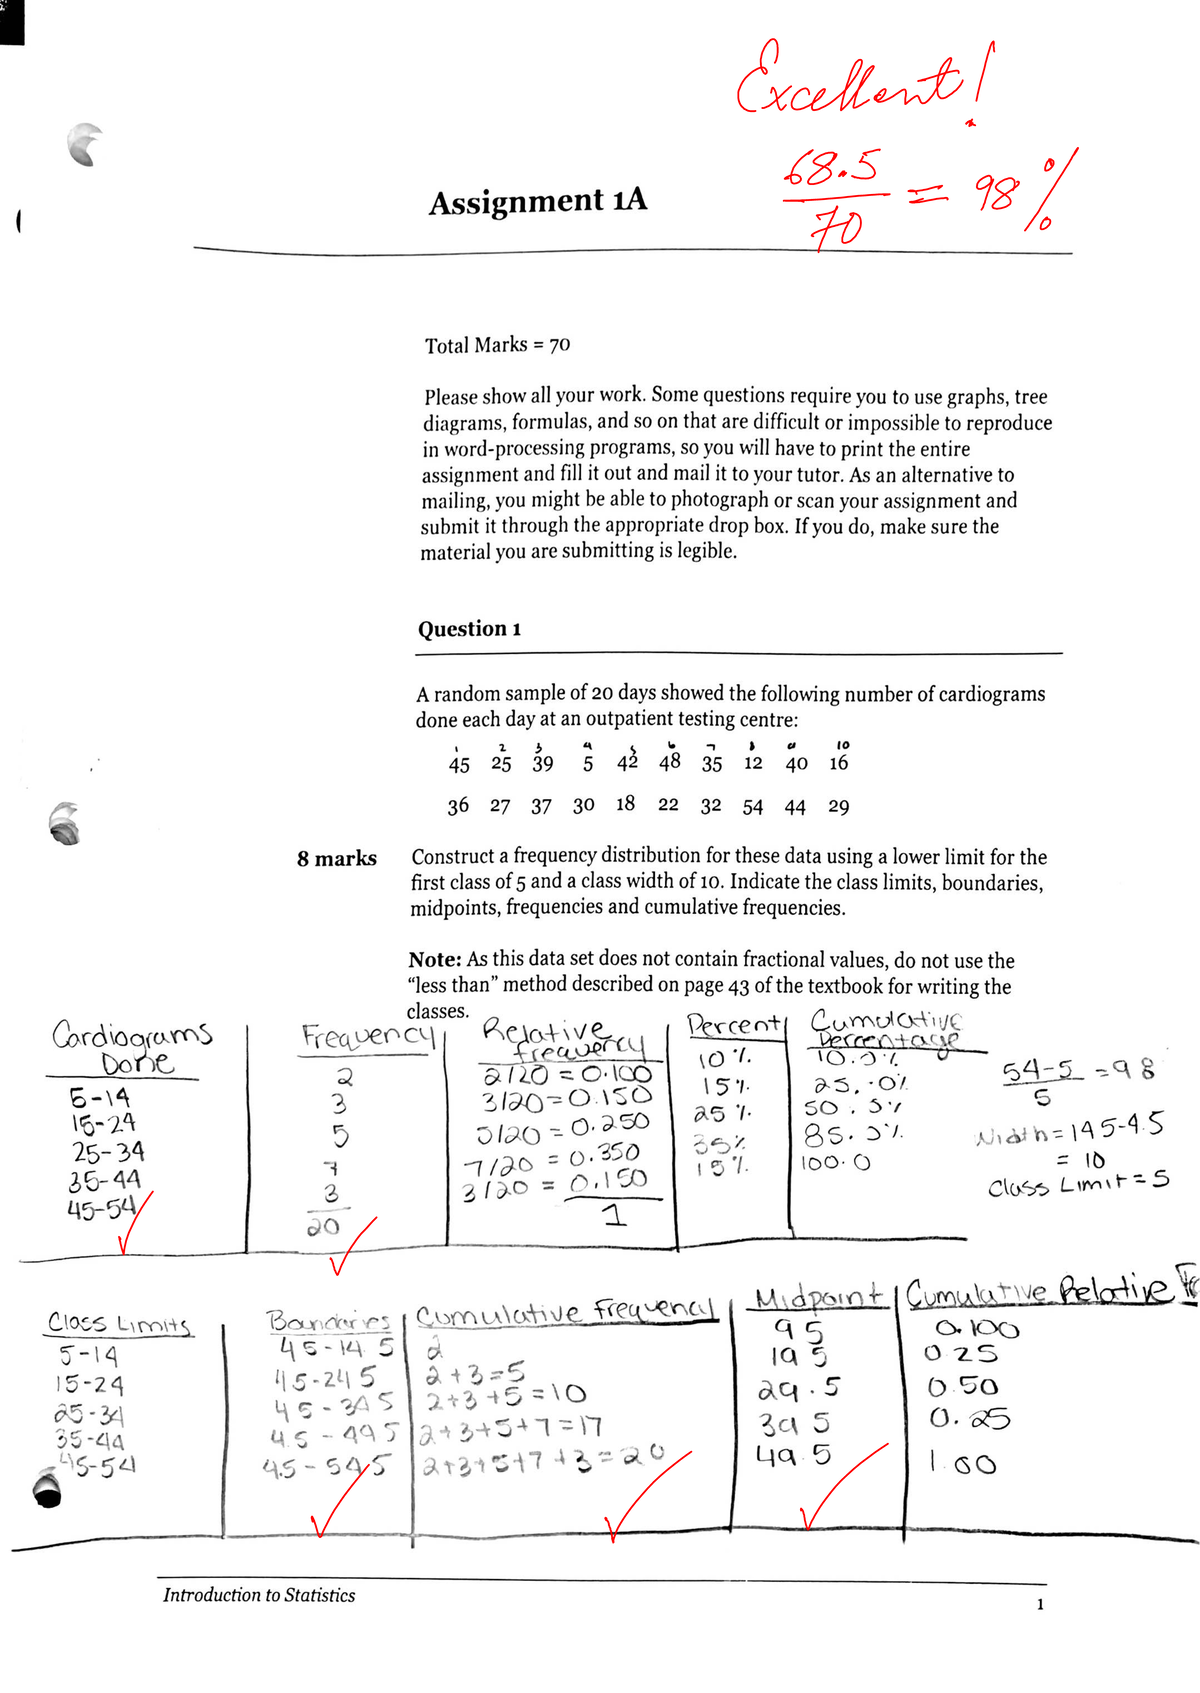 Excellent!
68.5
70
= 98%
Assignment 1A
Total Marks = 70
Please show all your work. Some questions require you to use graphs, tree
diagrams, formulas, and so on that are difficult or impossible to reproduce
in word-processing programs, so you will have to print the entire
assignment and fill it out and mail it to your tutor. As an alternative to
mailing, you might be able to photograph or scan your assignment and
submit it through the appropriate drop box. If you do, make sure the
material you are submitting is legible.
Question 1
A random sample of 20 days showed the following number of cardiograms
done each day at an outpatient testing centre:
1 2 3 4 5 6 7 8 9 10
45 25 39 5 42 48 35 12 40 16
36 27 37 30 18 22 32 54 44 29
8 marks Construct a frequency distribution for these data using a lower limit for the
first class of 5 and a class width of 10. Indicate the class limits, boundaries,
midpoints, frequencies and cumulative frequencies.
Note: As this data set does not contain fractional values, do not use the
“less than” method described on page 43 of the textbook for writing the
classes.
Cardiograms Done Frequency Relative frequency Percent Cumulative Percentage
5-14 2 2/20 = 0.100 10% 10.0%
15-24 3 3/20=0.150 15% 25.0%
25-34 5 5/20 = 0.250 25% 50.0%
35-44 7 7/20 = 0.350 35% 85.0%
45-54 3 3/20 = 0.150 15% 100.0
20 1
54-5 = 9 8
5
Width = 14 5-4.5
= 10
Class Limit = 5
Class Limits Boundaries Cumulative frequency Midpoint Cumulative Relative
5-14 4 5-14 5 2 9 5 0.100
15-24 4 5-24 5 2+3=5 19 5 0 25
25-34 4 5-34 5 2+3+5=10 29.5 0.50
35-44 4.5-44 5 2+3+5+7=17 39 5 0.25
45-54 4.5-54.5 2+3+5+7+3=20 49.5 1.00
Introduction to Statistics
1